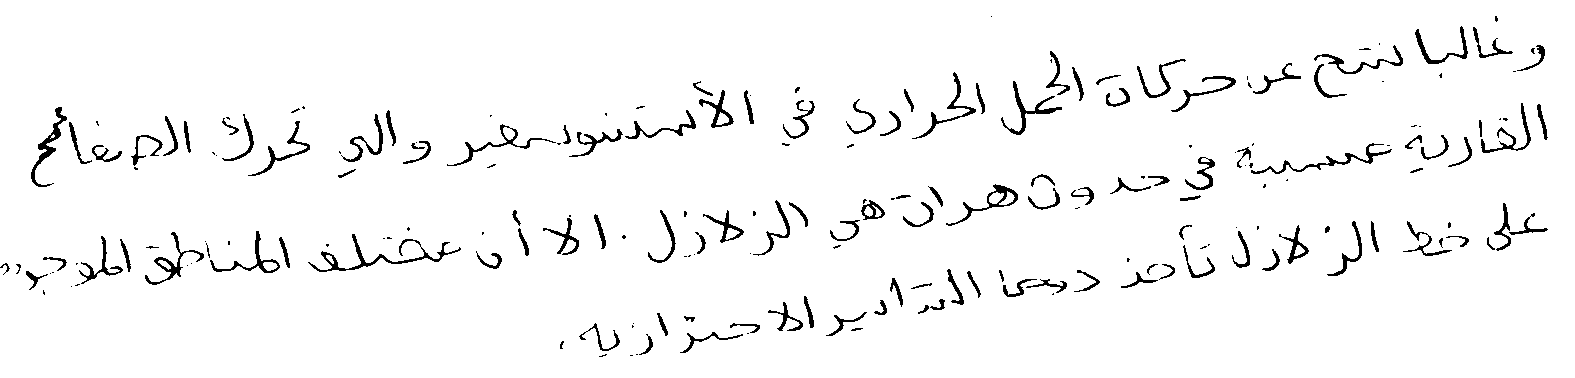 وغالبا نتج عن حركات الحمل الحراري في الأستنوسفير والتي تحرك الصفائح
القارية مسببة في حدوث هزات هي الزلازل. الا أن مختلف المناطق الموجودة
على خط الزلازل تأخذ دوما التدابير الاحترازية.